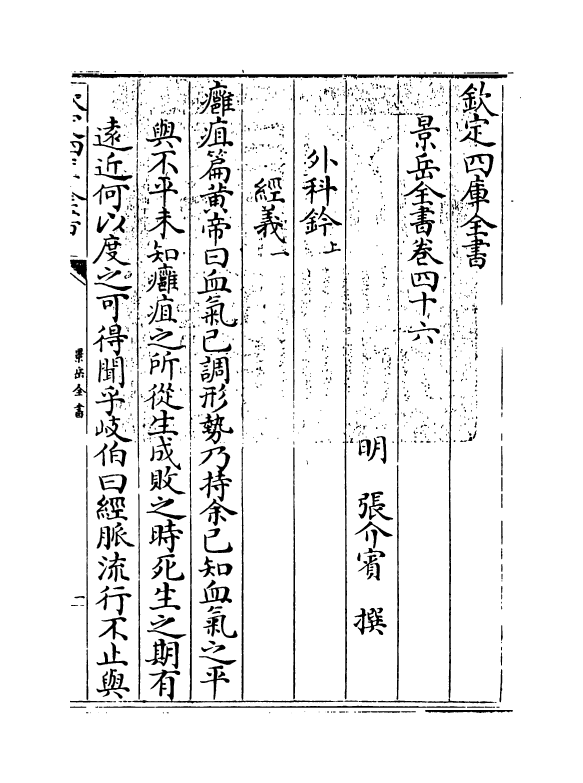 欽定四庫全書
景岳全書卷四十六
明 張介賓 撰
外科鈐上
經義一
癰疽篇黃帝曰血氣已調形勢乃持余已知血氣之平
與不平未知癰疽之所從生成敗之時死生之期有
遠近何以度之可得聞乎岐伯曰經脈流行不止與
景岳全書